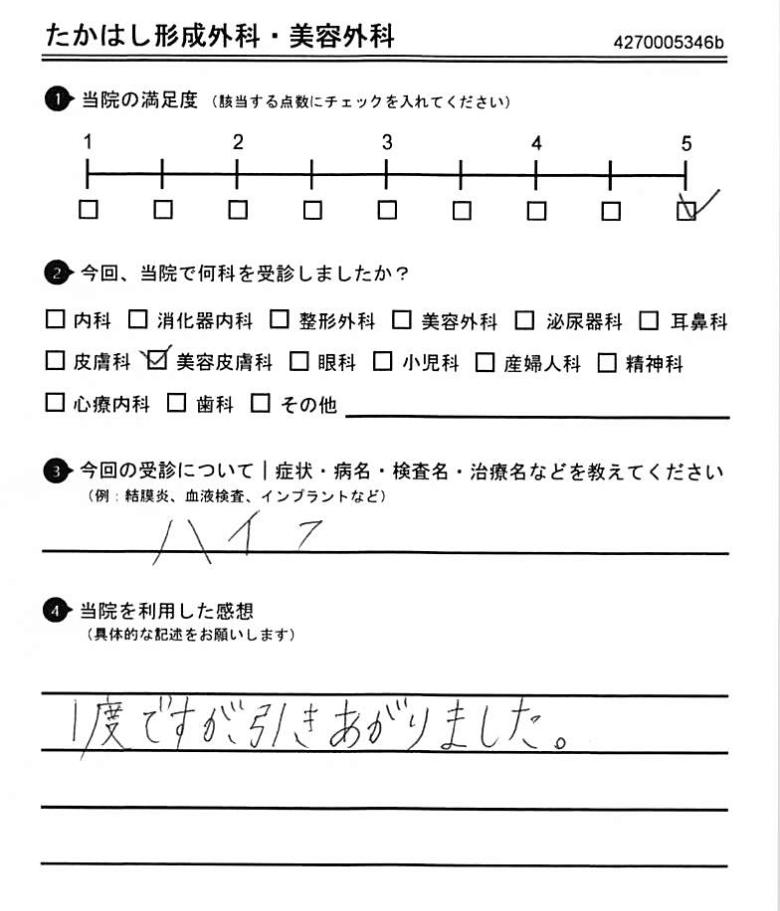 たかはし形成外科・美容外科 4270005346b
1 当院の満足度 (該当する点数にチェックを入れてください)
1 2 3 4 5
2 今回、当院で何科を受診しましたか?
内科 消化器内科 整形外科 美容外科 泌尿器科 耳鼻科
皮膚科 美容皮膚科 眼科 小児科 産婦人科 精神科
心療内科 歯科 その他
3 今回の受診について|症状・病名・検査名・治療名などを教えてください
(例:結膜炎、血液検査、インプラントなど)
ハイフ
4 当院を利用した感想
(具体的な記述をお願いします)
1度ですが、引きあがりました。